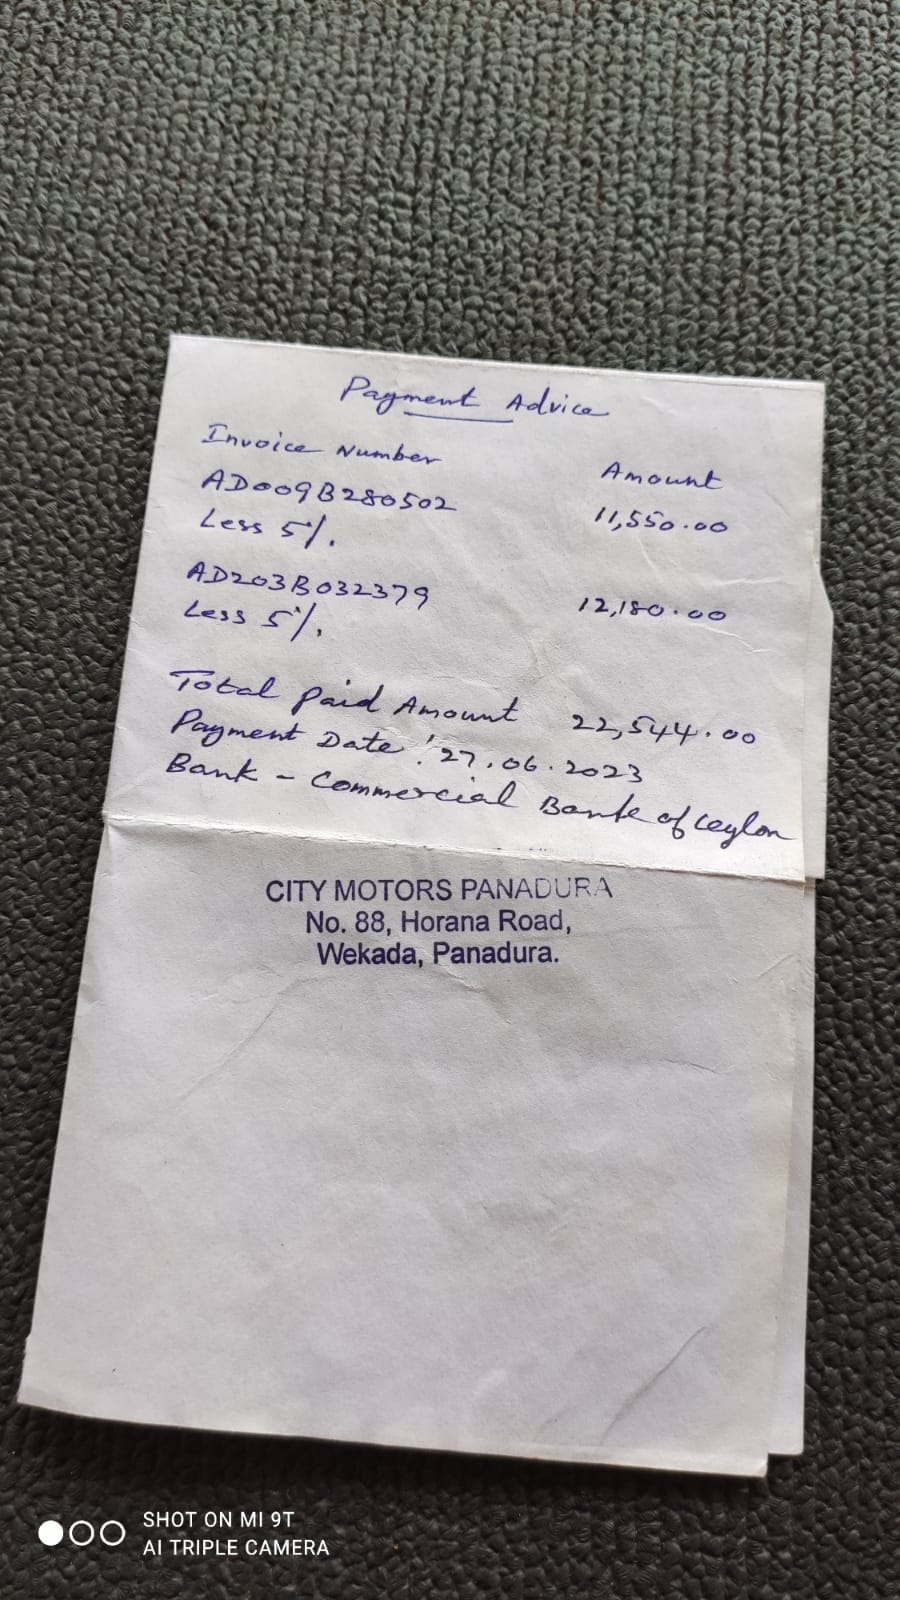 Payment Advice
Invoice Number Amount
AD009B280502 11,550.00
Less 5%.
AD203B032379 12,180.00
Less 5%.
Total Paid Amount 22,544.00
Payment Date : 27.06.2023
Bank - Commercial Bank of Ceylon
CITY MOTORS PANADURA
No. 88, Horana Road,
Wekada, Panadura.
SHOT ON MI 9T
AI TRIPLE CAMERA